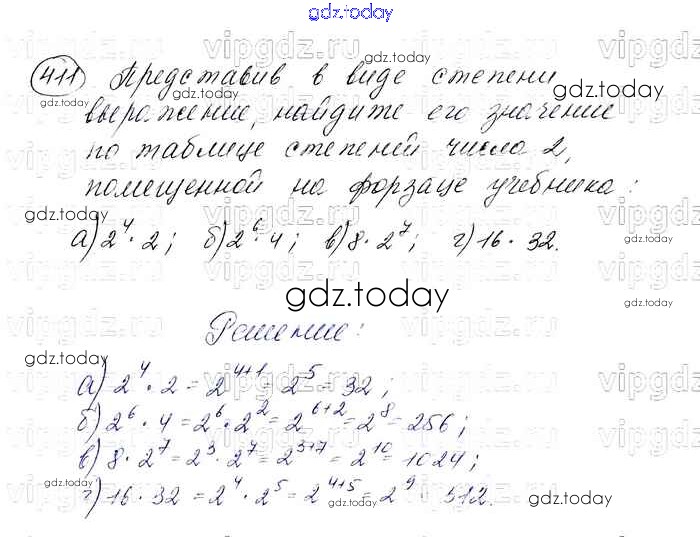 gdz.today
411 Представив в виде степени
выражение, найдите его значение
по таблице степеней числа 2,
помещенной на форзаце учебника:
а) 2⁴ · 2; б) 2⁶ · 4; в) 8 · 2⁷; г) 16 · 32.
gdz.today
Решение:
а) 2⁴ · 2 = 2⁴⁺¹ = 2⁵ = 32;
б) 2⁶ · 4 = 2⁶ · 2² = 2⁶⁺² = 2⁸ = 256;
в) 8 · 2⁷ = 2³ · 2⁷ = 2³⁺⁷ = 2¹⁰ = 1024;
г) 16 · 32 = 2⁴ · 2⁵ = 2⁴⁺⁵ = 2⁹ = 512.